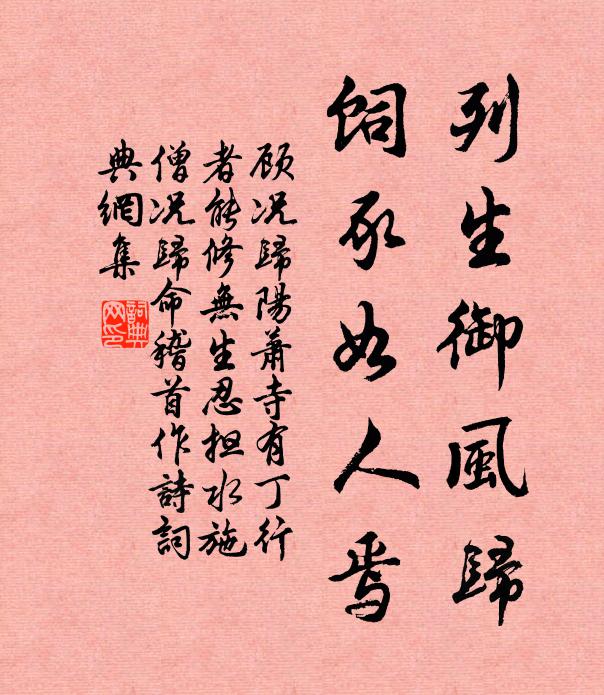 列生御風歸
飼豕如人焉
顾况歸陽蕭寺有丁行
者能修無生忍担水施
僧况歸命稽首作詩詞
典網集
詞典网印